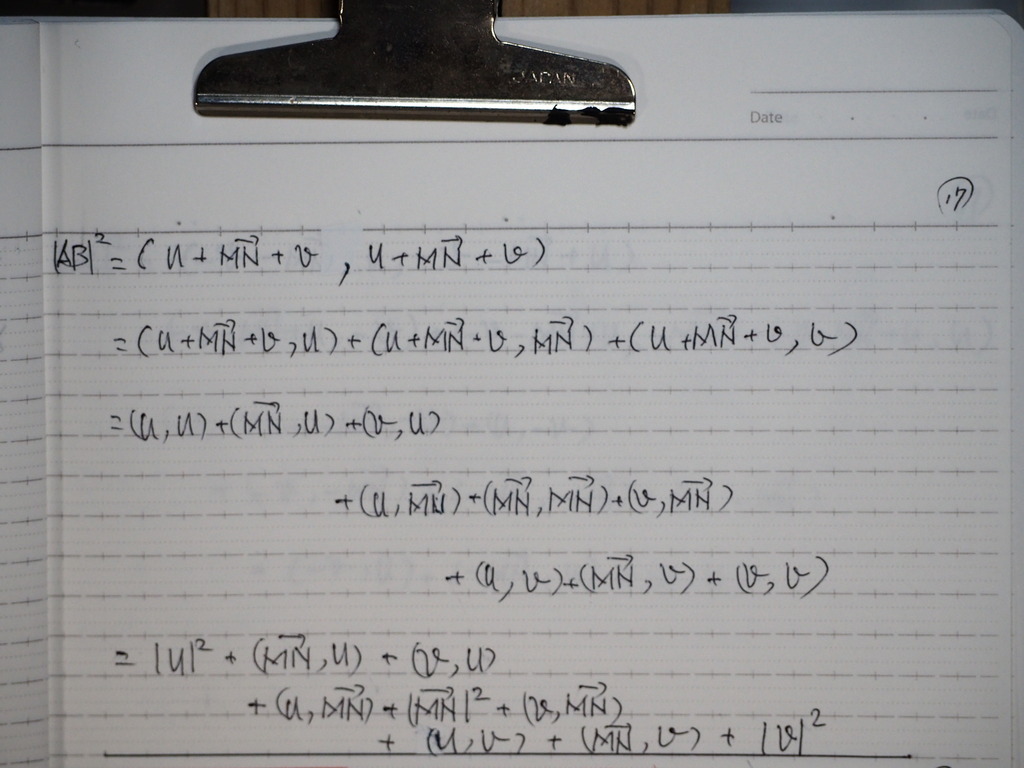 JAPAN
Date
17
|AB|² = (u + \overrightarrow{MN} + v , u + \overrightarrow{MN} + v)
= (u + \overrightarrow{MN} + v, u) + (u + \overrightarrow{MN} + v, \overrightarrow{MN}) + (u + \overrightarrow{MN} + v, v)
= (u, u) + (\overrightarrow{MN}, u) + (v, u)
+ (u, \overrightarrow{MN}) + (\overrightarrow{MN}, \overrightarrow{MN}) + (v, \overrightarrow{MN})
+ (u, v) + (\overrightarrow{MN}, v) + (v, v)
= |u|² + (\overrightarrow{MN}, u) + (v, u)
+ (u, \overrightarrow{MN}) + |\overrightarrow{MN}|² + (v, \overrightarrow{MN})
+ (u, v) + (\overrightarrow{MN}, v) + |v|²